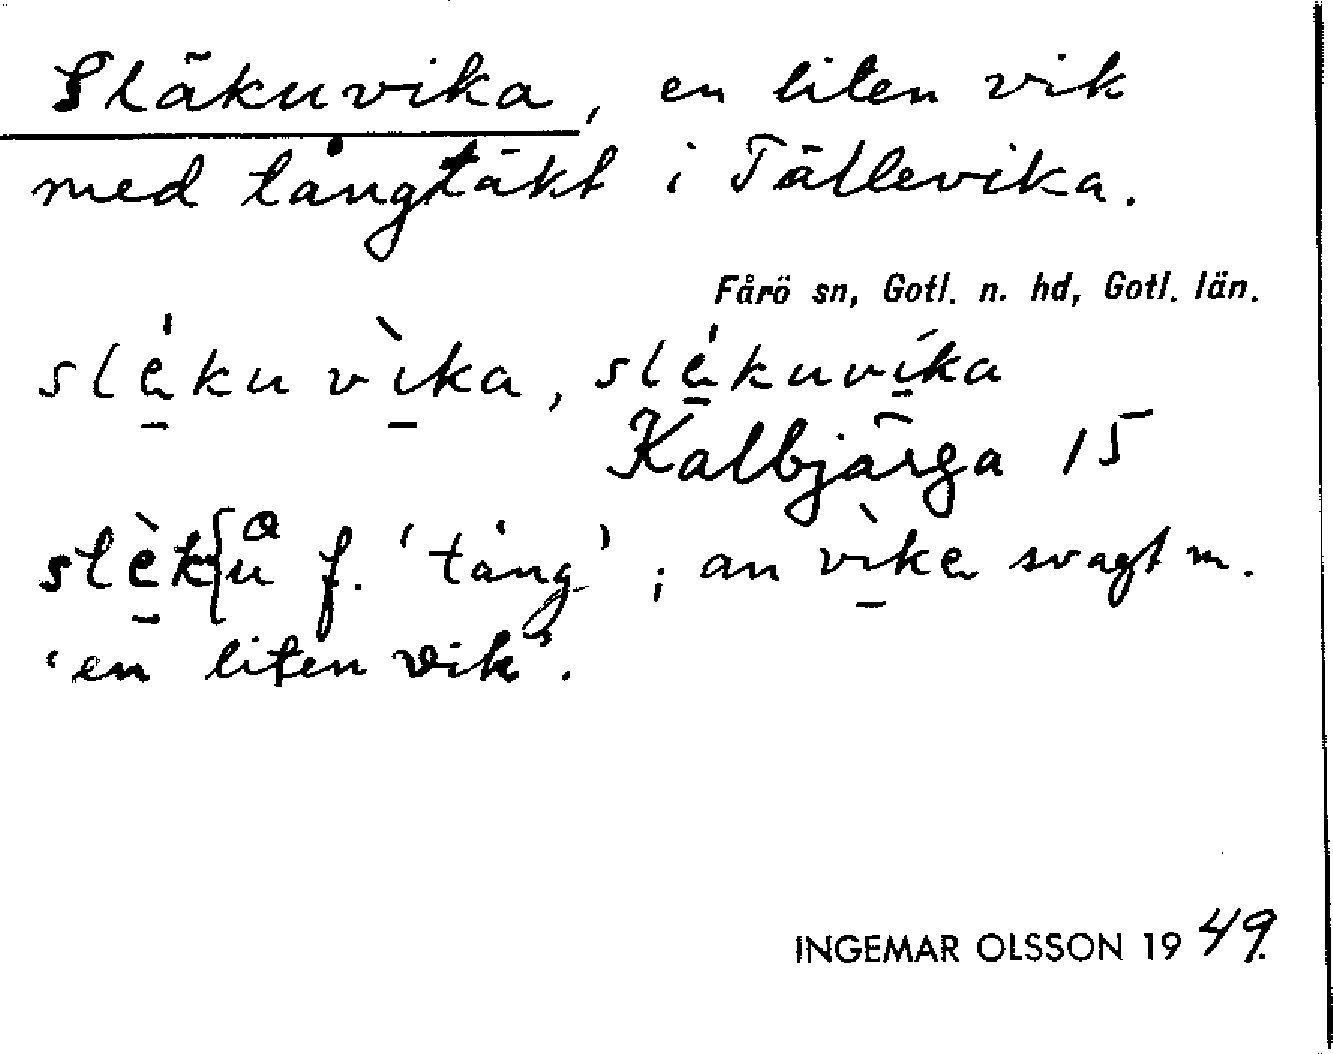 Släkuvika, en liten vik
med tångtäkt i Tällevika.
Fårö sn, Gotl. n. hd, Gotl. län.
slèkuvìka, slékuvíka
Kalbjärga 15
slèk{a u f. 'tång'; an vìka svagt m.
'en liten vik'.
INGEMAR OLSSON 1949.